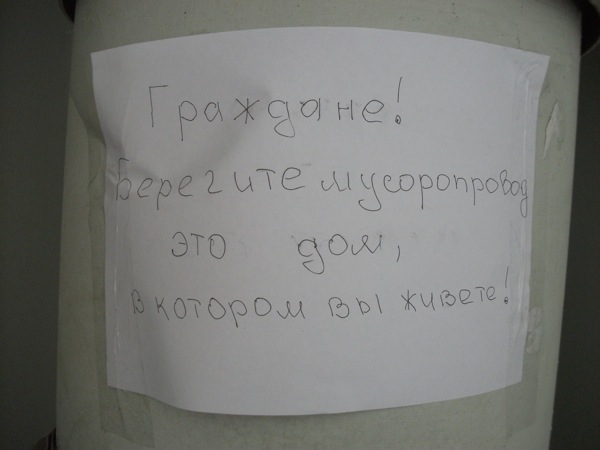 Граждане!
Берегите мусоропровод
это дом,
в котором вы живете!